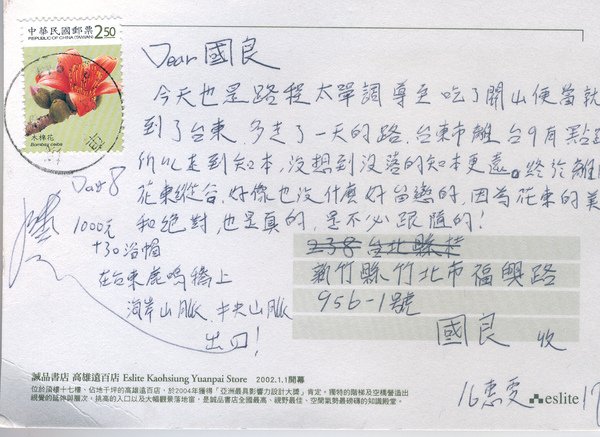 中華民國郵票 2.50
REPUBLIC OF CHINA (TAIWAN)
木棉花
Bombax ceiba
Dear 國良
今天也是路程太單調 導至 吃了關山便當就
到了台東，多走了一天的路，台東市離台9有點
所以走到知本，沒想到沒落的知本更遠。終於離
花東縱谷，好像也沒什麼好留戀的，因為花東的美
和絕對，也是真的，是不必跟隨的！
Day 8
1000元
+30浴帽
在台東鹿鳴橋上
海岸山脈、中央山脈
出口！
238 台北縣
新竹縣竹北市福興路
956-1號
國良 收
誠品書店 高雄遠百店 Eslite Kaohsiung Yuanpai Store 2002.1.1開幕
位於頂樓十七樓、佔地千坪的高雄遠百店，於2004年獲得「亞洲最具影響力設計大獎」肯定。獨特的階梯及空橋營造出
視覺的延伸與層次，挑高的入口以及大幅觀景落地窗，是誠品書店全國最高、視野最佳、空間氣勢最磅礡的知識殿堂。
eslite